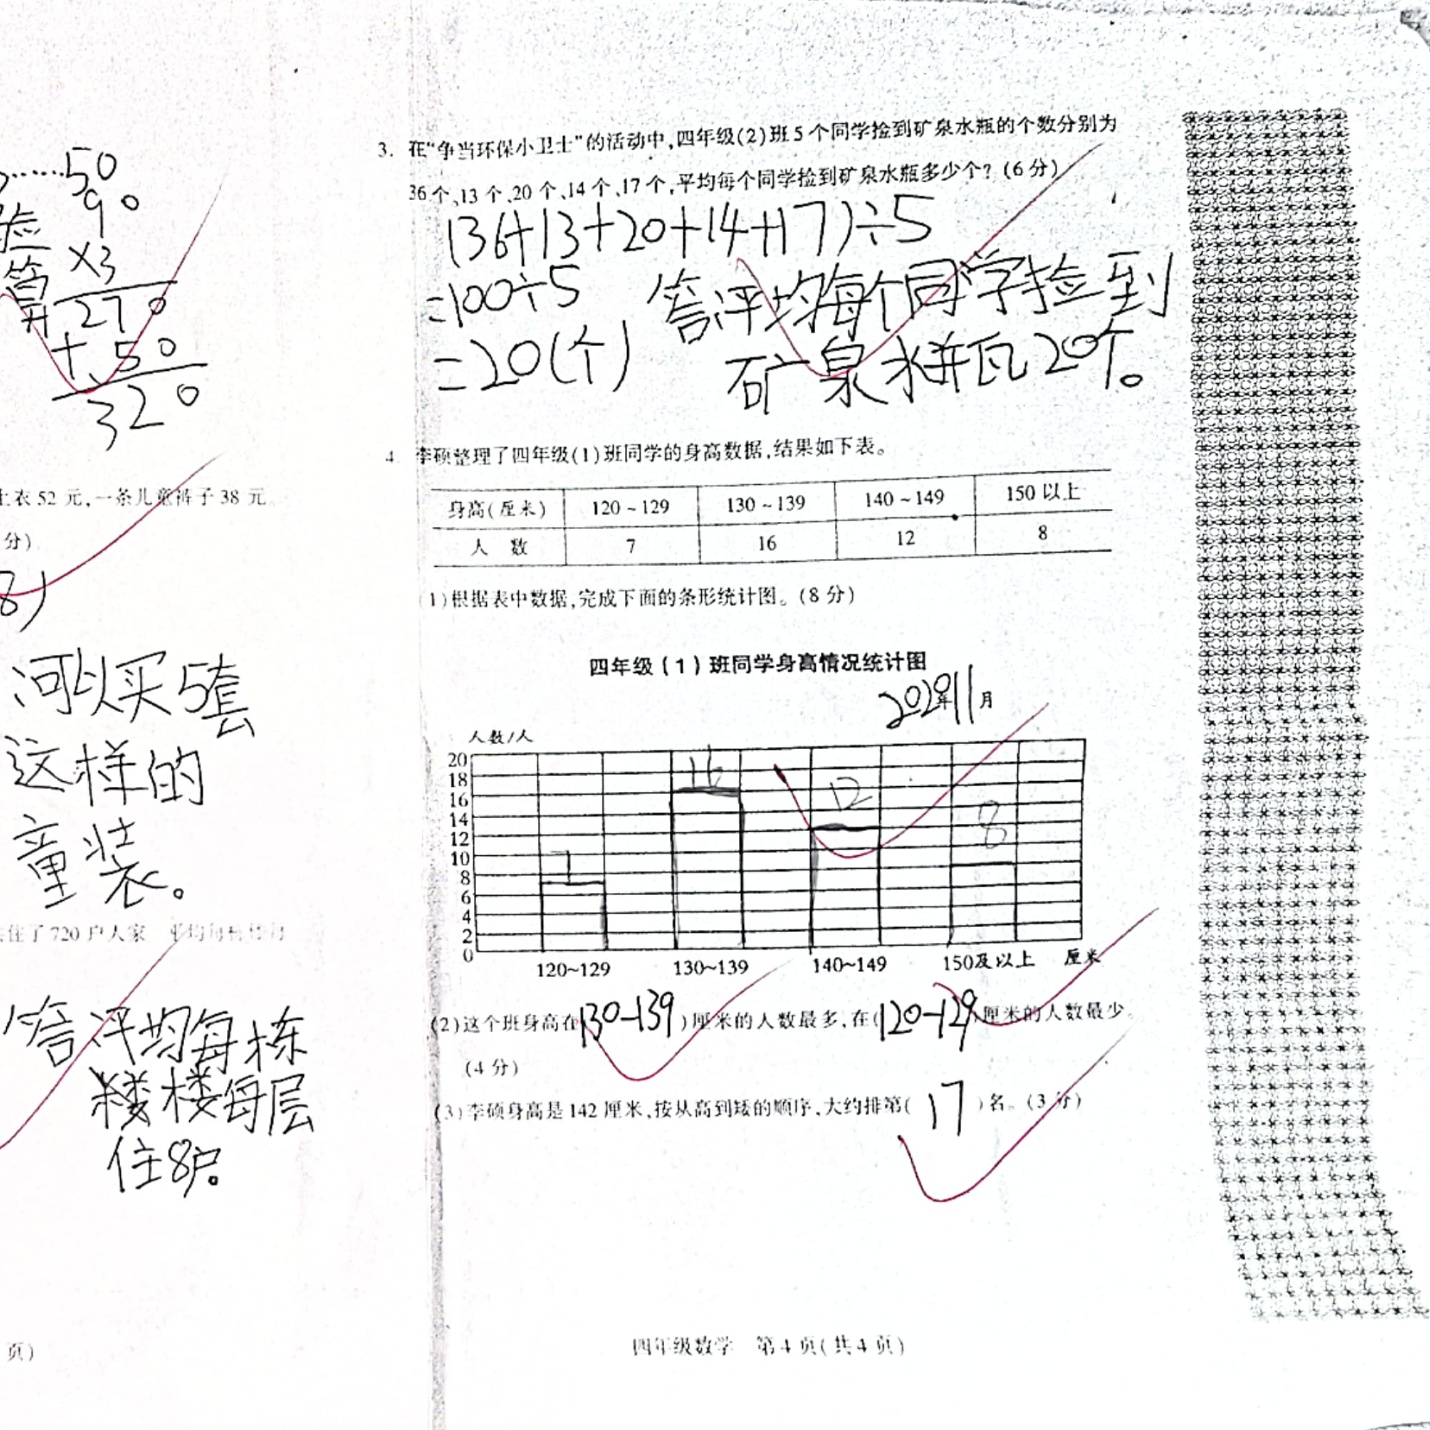 ……50
90
验 ×3
算 270
+ 50
320
上衣 52 元,一条儿童裤子 38 元。
分)
8)
河以买5套
这样的
童装。
住了 720 户人家
答评均每栋
楼楼每层
住8户。
页)
3. 在“争当环保小卫士”的活动中,四年级(2)班 5 个同学捡到矿泉水瓶的个数分别为
36 个、13 个、20 个、14 个、17 个,平均每个同学捡到矿泉水瓶多少个? (6 分)
(36+13+20+14+17)÷5
=100÷5
=20(个)
答评均每个同学捡到
矿泉水瓶20个。
4. 李硕整理了四年级(1)班同学的身高数据,结果如下表。
身高(厘米) 120~129 130~139 140~149 150 以上
人 数 7 16 12 8
(1)根据表中数据,完成下面的条形统计图。(8 分)
四年级(1)班同学身高情况统计图
2020年11月
人数/人
20
18
16
14
12
10
8
6
4
2
0
7
16
12
8
120~129 130~139 140~149 150及以上 厘米
(2)这个班身高在(130-139)厘米的人数最多,在(120-129)厘米的人数最少。
(4 分)
(3)李硕身高是 142 厘米,按从高到矮的顺序,大约排第( 17 )名。(3 分)
四年级数学 第 4 页(共 4 页)